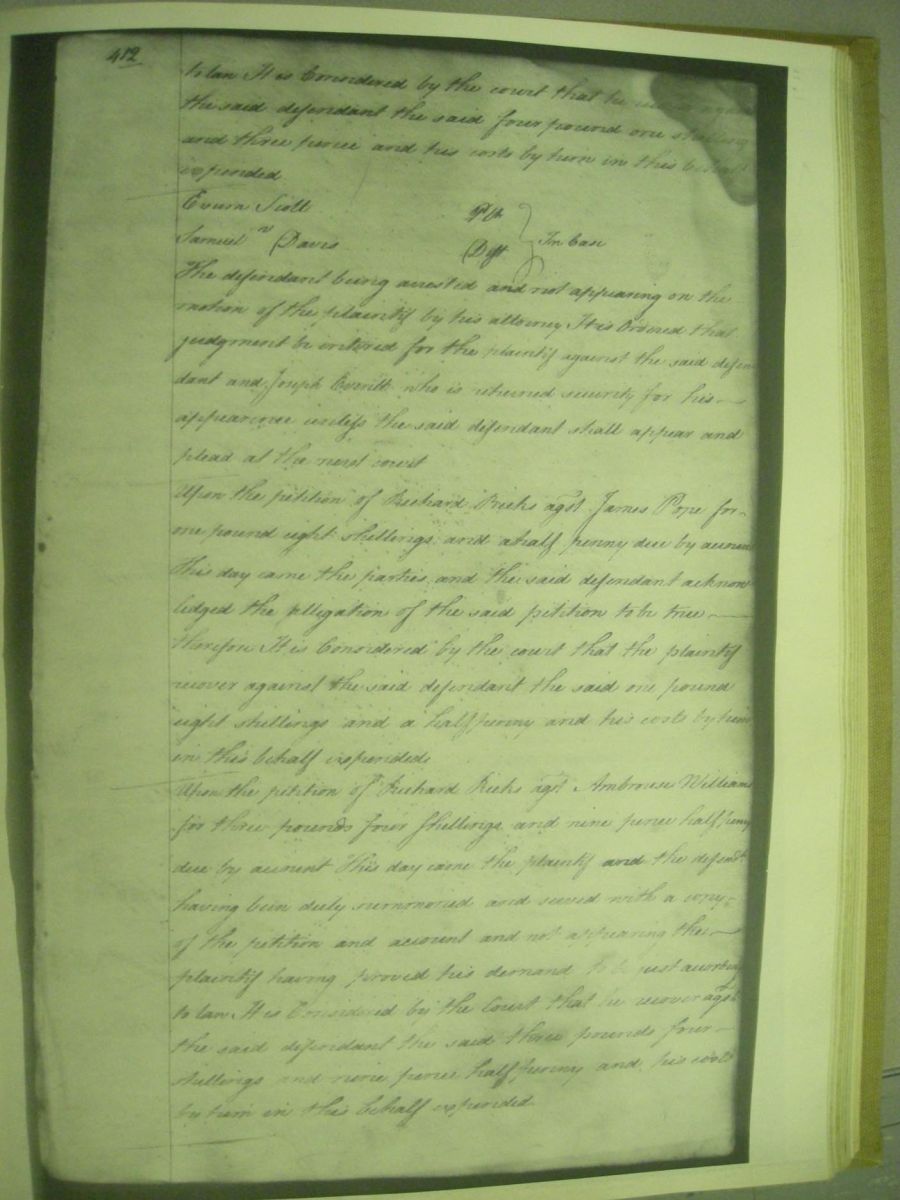 412
to law It is Considered by the court that he recover against
the said defendant the said four pound one shilling
and three pence and his costs by him in this behalf
expended
Exum Scott Plt
vs In Case
Samuel Davis Deft
The defendant being arrested and not appearing on the
motion of the plaintif by his attorney It is Ordered that
judgment be entered for the plaintif against the said defen
dant and Joseph Everitt who is returned security for his
appearance unless the said defendant shall appear and
plead at the next court
Upon the petition of Richard Ricks agst James Pope for
one pound eight shillings and a half penny due by account
This day came the parties and the said defendant acknow
ledged the alligation of the said petition to be true
therefore It is Considered by the court that the plaintif
recover against the said defendant the said one pound
eight shillings and a half penny and his costs by him
in this behalf expended
Upon the petition of Richard Ricks agst Ambrouse Williams
for three pounds four shillings and nine pence half penny
due by account This day came the plaintif and the defendt
having been duly summoned and served with a copy
of the petition and account and not appearing the
plaintif having proved his demand to be just according
to law It is Considered by the Court that he recover agst
the said defendant the said three pounds four
shillings and nine pence half penny and his costs
by him in this behalf expended